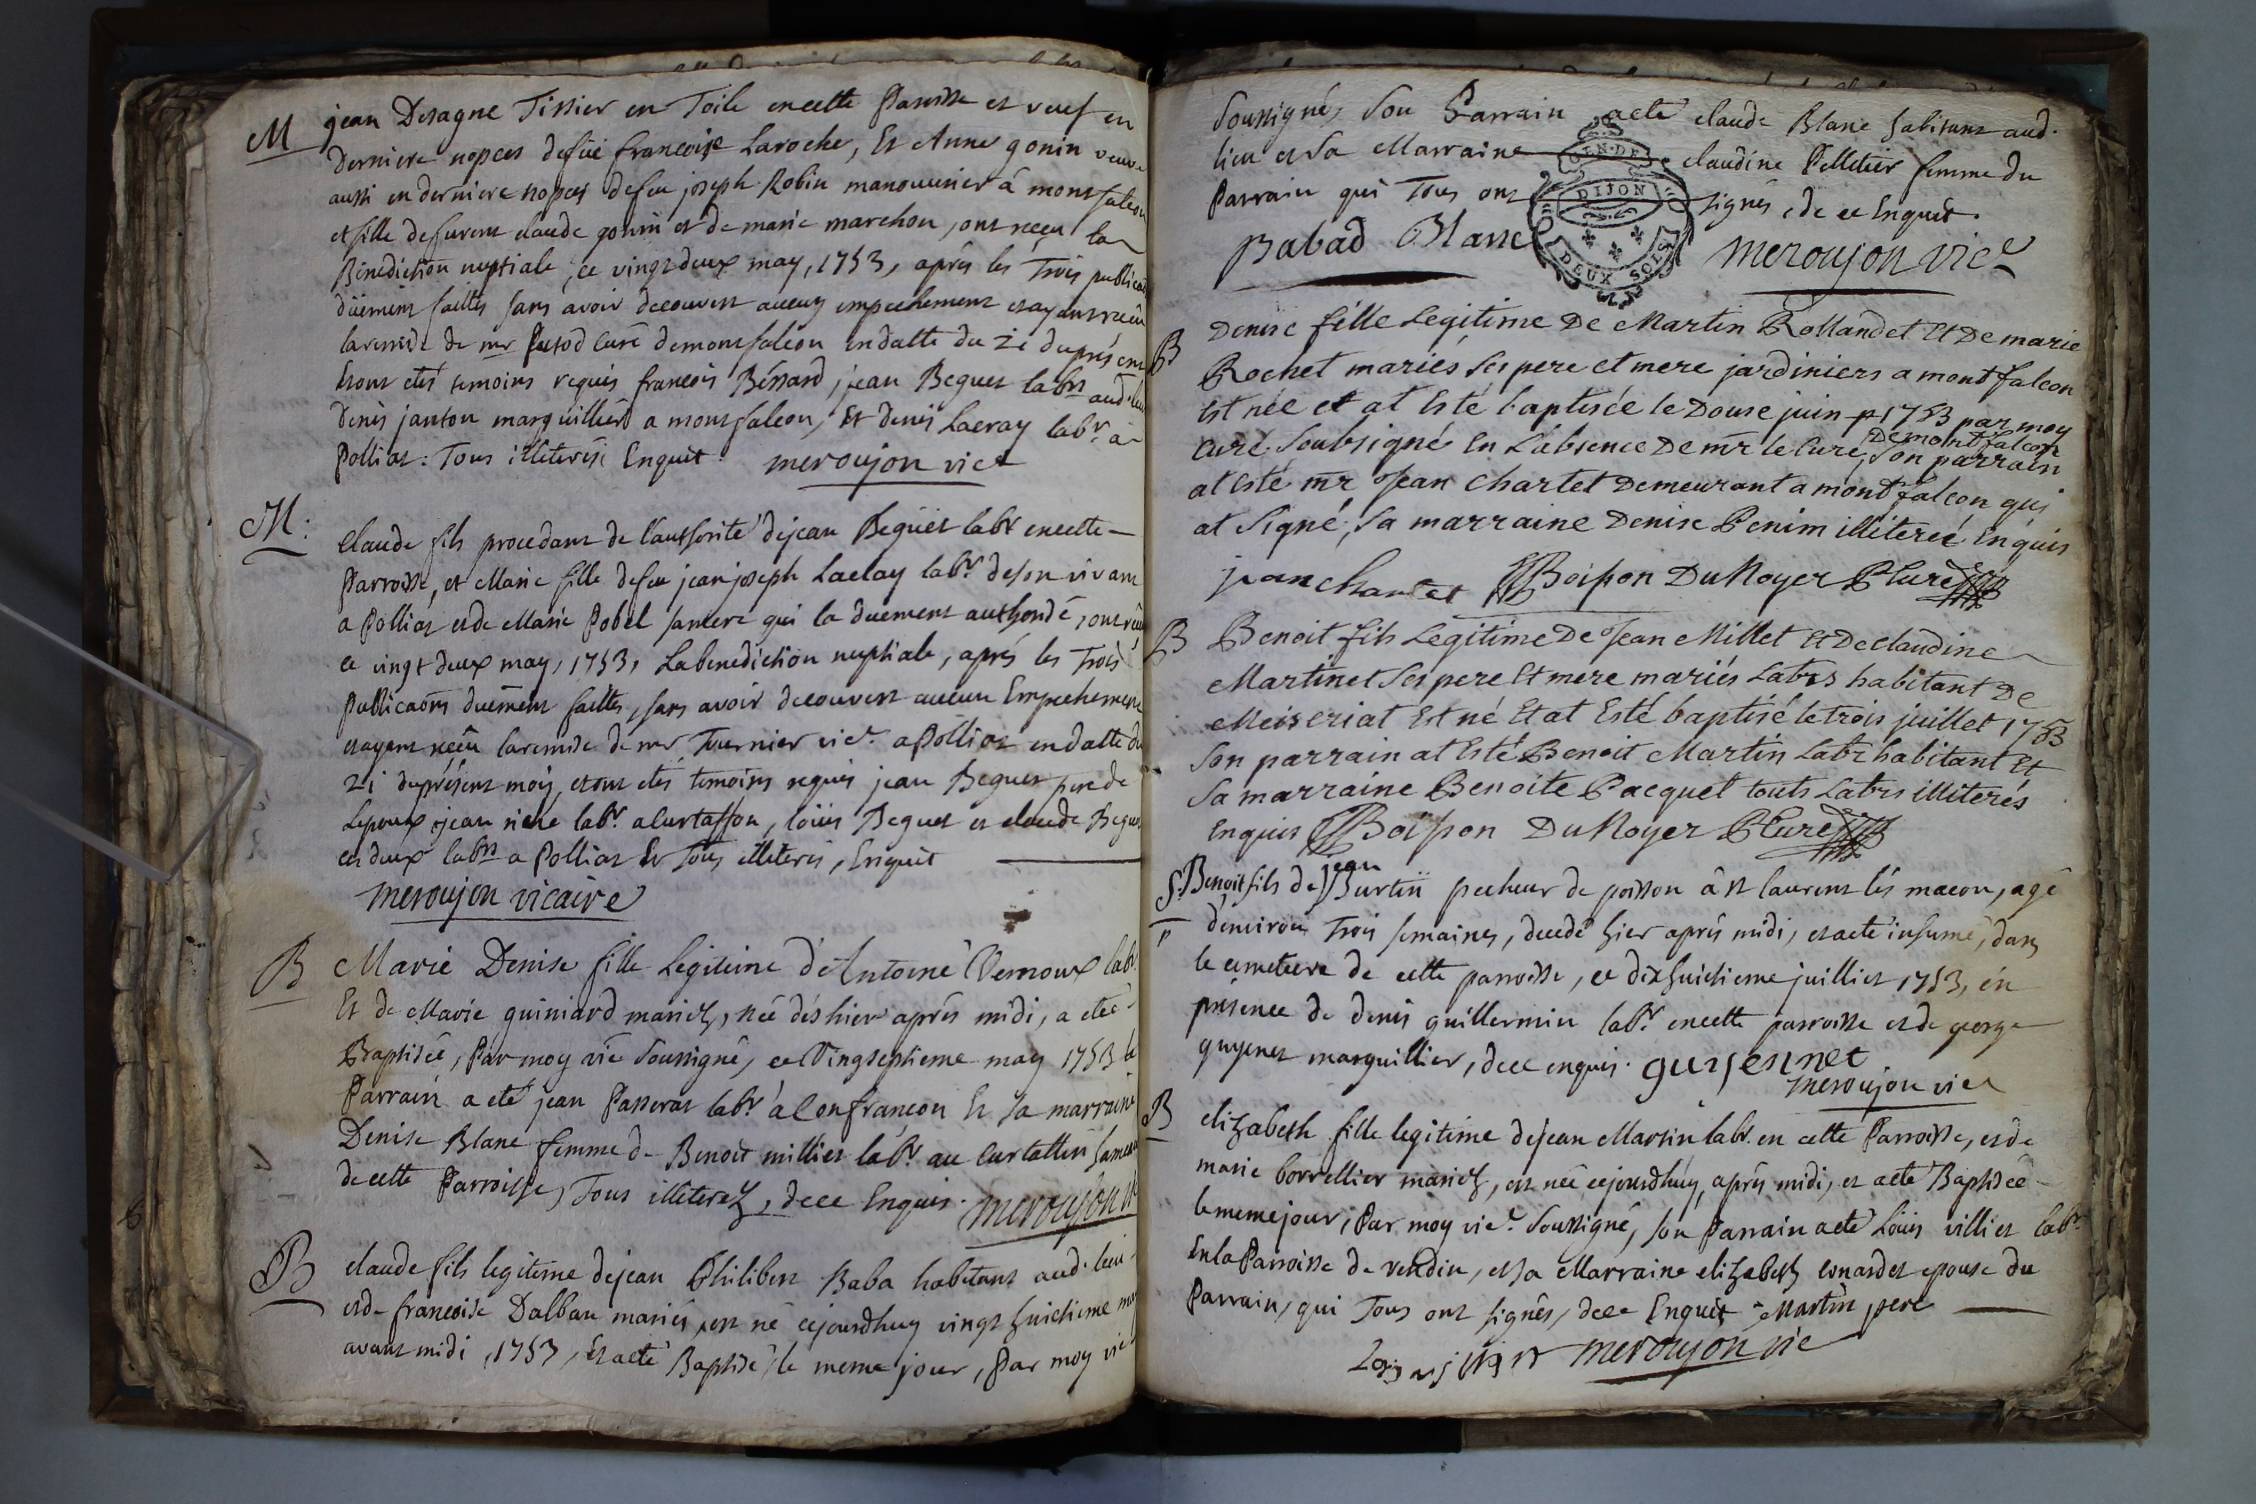 M jean Desagne Tissier en Toile encette Paroisse et veuf en
Derniere nopces defüe francoise Laroche, Et Anne gonin veuve
aussi en derniere nopces defeu joseph Robin manouvrier â montfalcon
et fille defurent claude gonin et de marie marchon, ont reçeu la
Bénédiction nuptiale, ce vingt deux may, 1753, aprés les Trois publicaõ
düement faittes sans avoir decouvert aucun empechement etayant receü
laremise de mr Putod Curé demontfalcon endatte du 21 duprésent
Etont etés temoins requis francois Béssard, jean Beguet labrs aud. lieu
Denis janton marguilliér a montfalcon, Et denis Lacray labr. a
Polliat: Tous illiterés Enquit. meroujon vicr
M: Claude fils procedant de l'authorité dejean Beguët labr encette
Parroisse, et Marie fille defeu jean joseph Laclay labr. deson vivant
a Polliat et de Marie Pobel samere qui la düement authorisé, ont reçeu
ce vingt deux may, 1753, Labenediction nuptiale, aprés les Trois
Publicaõns duëment faittes, sans avoir decouvert aucun Empechement
etayant reçeu laremise de mr Tournier vicr. a Polliat endatte du
21 duprésent mois, etont etés temoins requis jean Beguet pere de
Lepoux, jean riche labr. a Curtaffon, loüis Beguet et claude Beguet
ces deux labrs a Polliat Et Tous illiterés, Enquit
meroujon vicaire
B Marie Denise fille Legitime d'Antoine Vernoux labr.
Et de Marie guiniard mariez, née dés hier aprés midi, a eteé
Baptiséé, Par moy vic soussigné, ce Vingtseptieme may 1753 le
Parrain a eté jean Passerat labr. â Confrançon Et sa marraine
Denise Blanc femme de Benoit milliet labr. au Curtattin hameau
de cette Parroisse, Tous illiterez, dece Enquis. meroujon vic
B claude fils legitime dejean Philibert Baba habitant aud. lieu
etde francoise Dalban mariés, est né cejourdhuy vingt huictieme may
avant midi, 1753, Et aeté Baptisé le meme jour, Par moy vicr
Soussigné, Son Parrain aeté claude Blanc habitant aud.
lieu et Sa Marraine claudine Pelletier femme du
Parrain qui Tous ont signés, de ce Enquit.
Babad Blanc meroujon vicr
GEN. DE
DIJON
DEUX SOLS
B Denise fille Legitime De Martin Rollandet Et De marie
Rochet mariés Ses pere et mere jardiniers a montfalcon
est née et at Esté baptisée le Douse juin 1753 par moy
Curé Soubsigné En L'absence De mr le Curé Demontfalcon, Son parrain
at Esté mr Jean Chartet Demeurant a montfalcon qui
at Signé, Sa marraine Denise Penim illiterée Enquis
jean Chartet Boisson DuNoyer PCuré
B Benoit fils Legitime De Jean Millet Et De claudine
Martinet Ses pere Et mere mariés Labrs habitant De
Meiseriat Est né Et at Esté baptisé le trois juillet 1753
Son parrain at Esté Benoit Martin Labr habitant Et
Sa marraine Benoite Pacquet touts Labrs illiterés
Enquis Boisson DuNoyer PCuré
S. Benoit fils de jean Burtin pecheur de poisson â st laurent lés macon, agé
d'environ Trois semaines, decedé hier aprés midi, etaeté inhumé, dans
le cimetiere de cette parroisse, ce dixhuictieme juilliet 1753, én
présence de denis guillermin labr. encette parroisse et de george
guyenet marguillier, dece enquis. guyennet
meroujon vicr
B elizabeth fille legitime dejean Martin labr. en cette Parroisse, etde
marie borrellier mariez, est née cejourdhuy, aprés midi, et aeté Baptiséé
le memejour, Par moy vicr. Soussigné, son Parrain aeté Loüis villiet labr.
En la Parroisse de vendin, etsa Marraine elizabeth conardet epouse du
Parrain, qui Tous ont signés, dece Enquit Martin pere
meroujon vic